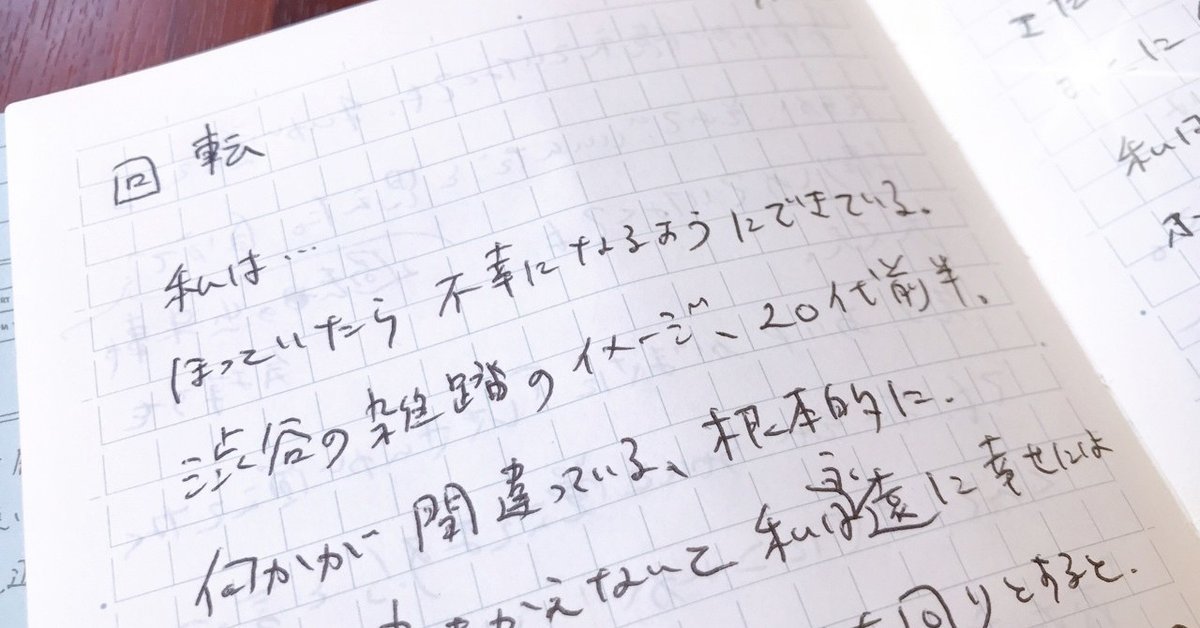 回転
私は…
ほっていたら不幸になるようにできている。
渋谷の雑踏のイメージ、20代前半。
何かが間違っている、根本的に.
かえないと 私は永遠に幸せには
回りとすると.
私は